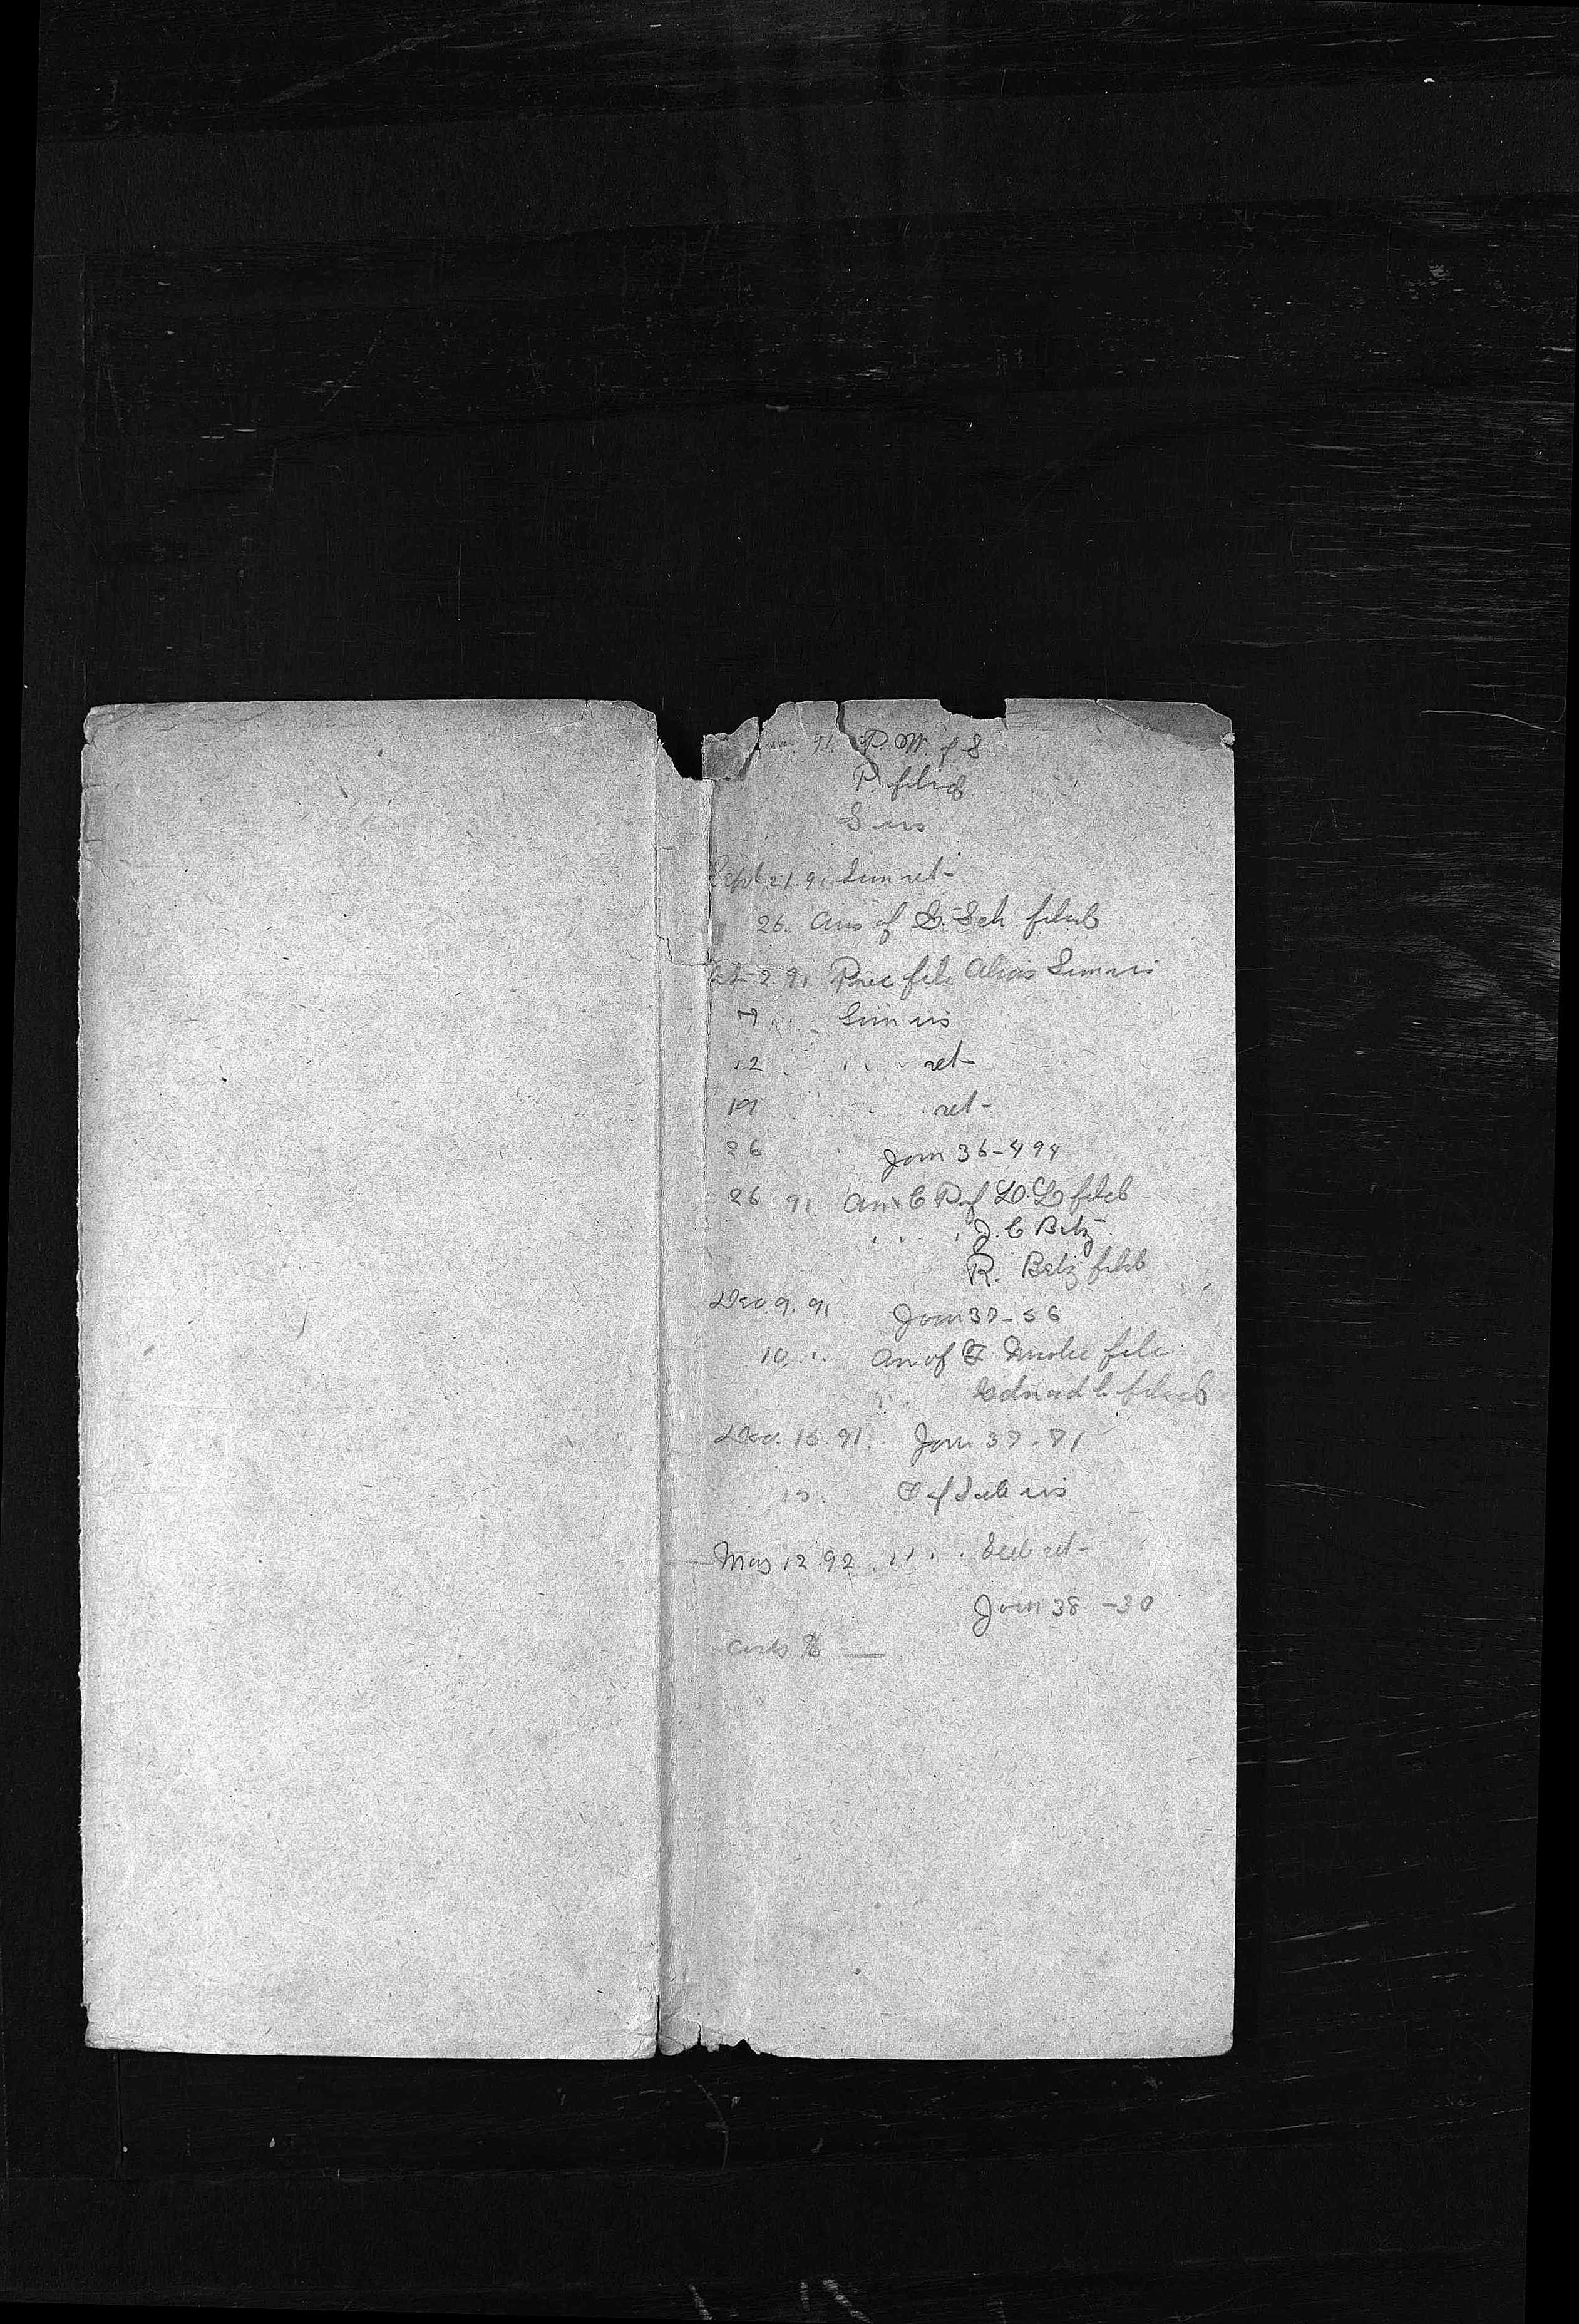 91. P. W. of S
P. filed
S iss
Sept 21. 91 Sum ret-
26. Ans of S. Sch filed
Oct-2. 91 Prec file Alias Sum iss
7 " Sum iss
12 " " ret-
19 ret-
26 Jour 36-494
26 91. Ans & C P of L. L filed
" " " J. C Betz
R. Betz filed
Dec 9. 91 Jour 37-56
10. " An of F. file
" Edward filed
Dec. 15. 91. Jour 37-71
O of Sale iss
May 12 92 " " ret-
Jour 38-30
Costs $ —